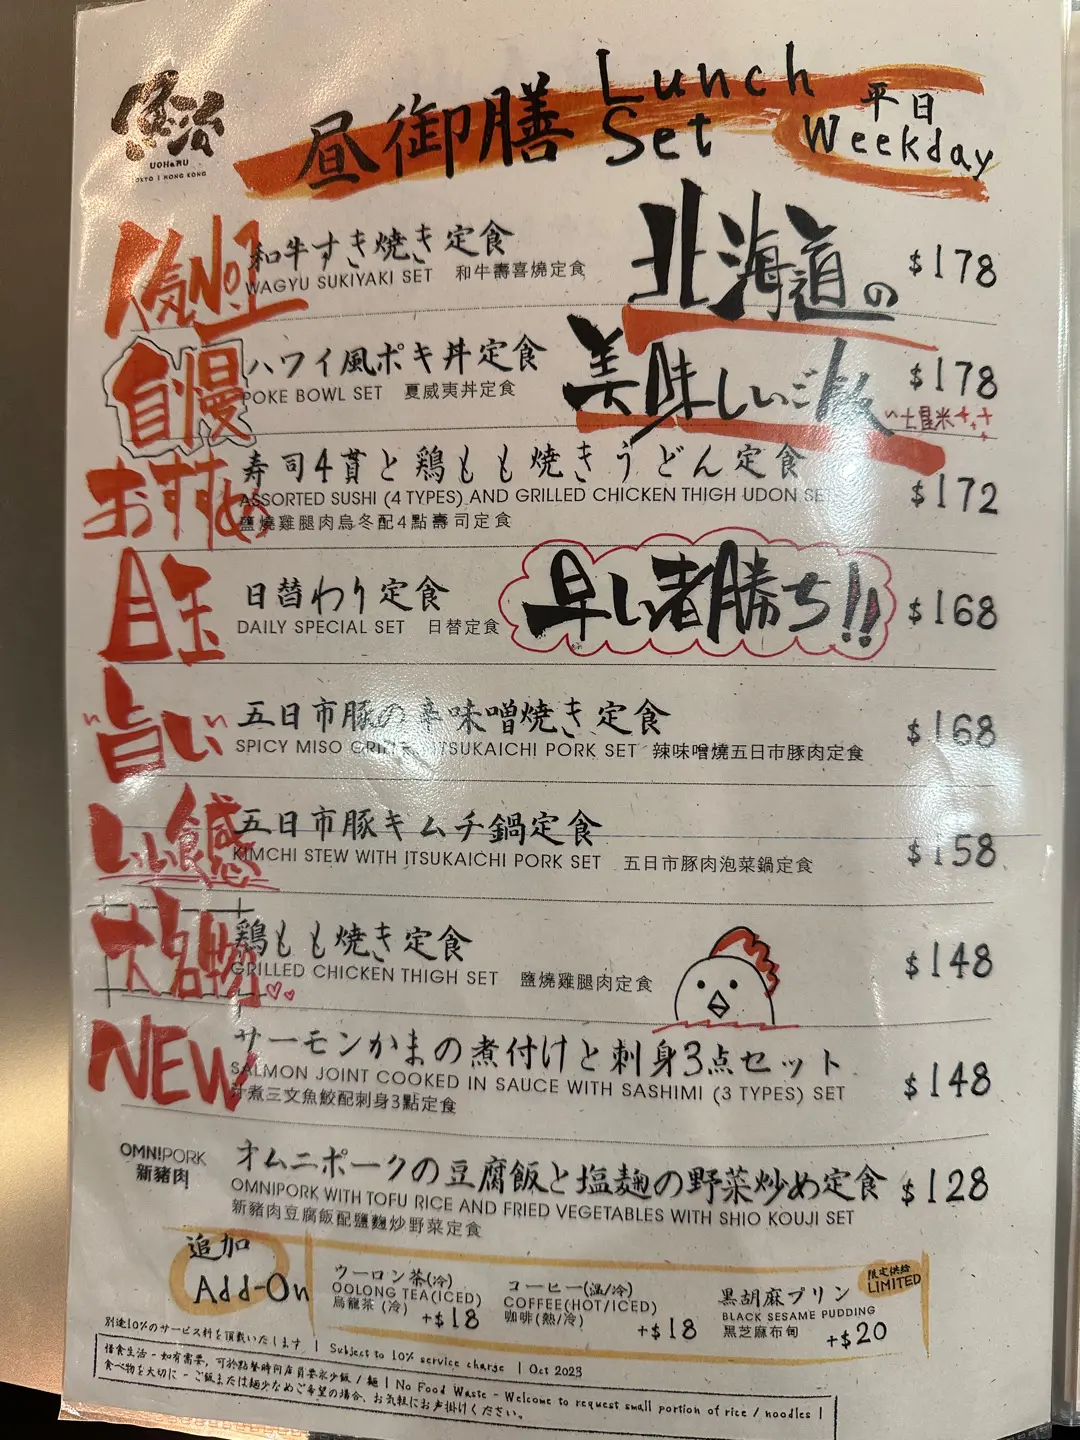 魚治
UOHARU
TOKYO | HONG KONG
昼御膳
Lunch
Set
平日
Weekday
人気No.1
和牛すき焼き定食
WAGYU SUKIYAKI SET 和牛壽喜燒定食
$178
北海道の
美味しいご飯
自慢
ハワイ風ポキ丼定食
POKE BOWL SET 夏威夷丼定食
$178
おすすめ
寿司4貫と鶏もも焼きうどん定食
ASSORTED SUSHI (4 TYPES) AND GRILLED CHICKEN THIGH UDON SET
鹽燒雞腿肉烏冬配4點壽司定食
$172
目玉
日替わり定食
DAILY SPECIAL SET 日替定食
早い者勝ち!!
$168
"旨い"
五日市豚の辛味噌焼き定食
SPICY MISO GRILLED ITSUKAICHI PORK SET 辣味噌燒五日市豚肉定食
$168
いい食感
五日市豚キムチ鍋定食
KIMCHI STEW WITH ITSUKAICHI PORK SET 五日市豚肉泡菜鍋定食
$158
大名物
鶏もも焼き定食
GRILLED CHICKEN THIGH SET 鹽燒雞腿肉定食
$148
NEW
サーモンかまの煮付けと刺身3点セット
SALMON JOINT COOKED IN SAUCE WITH SASHIMI (3 TYPES) SET
汁煮三文魚鮫配刺身3點定食
$148
OMNIPORK
新豬肉
オムニポークの豆腐飯と塩麹の野菜炒め定食
OMNIPORK WITH TOFU RICE AND FRIED VEGETABLES WITH SHIO KOUJI SET
新豬肉豆腐飯配鹽麴炒野菜定食
$128
追加
Add-On
ウーロン茶(冷)
OOLONG TEA(ICED)
烏龍茶 (冷)
+$18
コーヒー(温/冷)
COFFEE(HOT/ICED)
咖啡(熱/冷)
+$18
黒胡麻プリン
BLACK SESAME PUDDING
黑芝麻布甸
+$20
限定供給
LIMITED
別途10%のサービス料を頂戴いたします | Subject to 10% service charge | Oct 2023
惜食生活 - 如有需要，可於點餐時向店員要求少飯 / 麵 | No Food Waste - Welcome to request small portion of rice / noodles |
食べ物を大切に - ご飯または麺少なめご希望の場合、お気軽にお声掛けください。